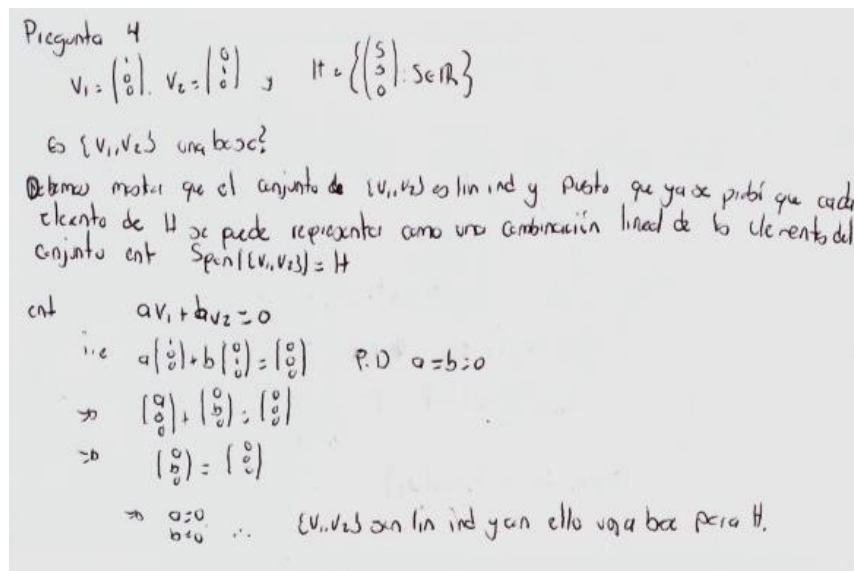 Pregunta 4
V₁ = (1 0 0). V₂ = (0 1 0) y H = {(s s 0) : s∈ℝ}
Es {V₁,V₂} una base?
Debemos mostrar que el conjunto de {V₁,V₂} es lin ind y puesto que ya se probó que cada
elemento de H se puede representar como una combinación lineal de los elementos del
conjunto ent Span({V₁,V₂}) = H
ent aV₁ + bV₂ = 0
i.e a(1 0 0) + b(0 1 0) = (0 0 0) P.D a=b=0
⇒ (a 0 0) + (0 b 0) = (0 0 0)
⇒ (a b 0) = (0 0 0)
⇒ a=0
b=0 ∴ {V₁,V₂} son lin ind y con ello una base para H.